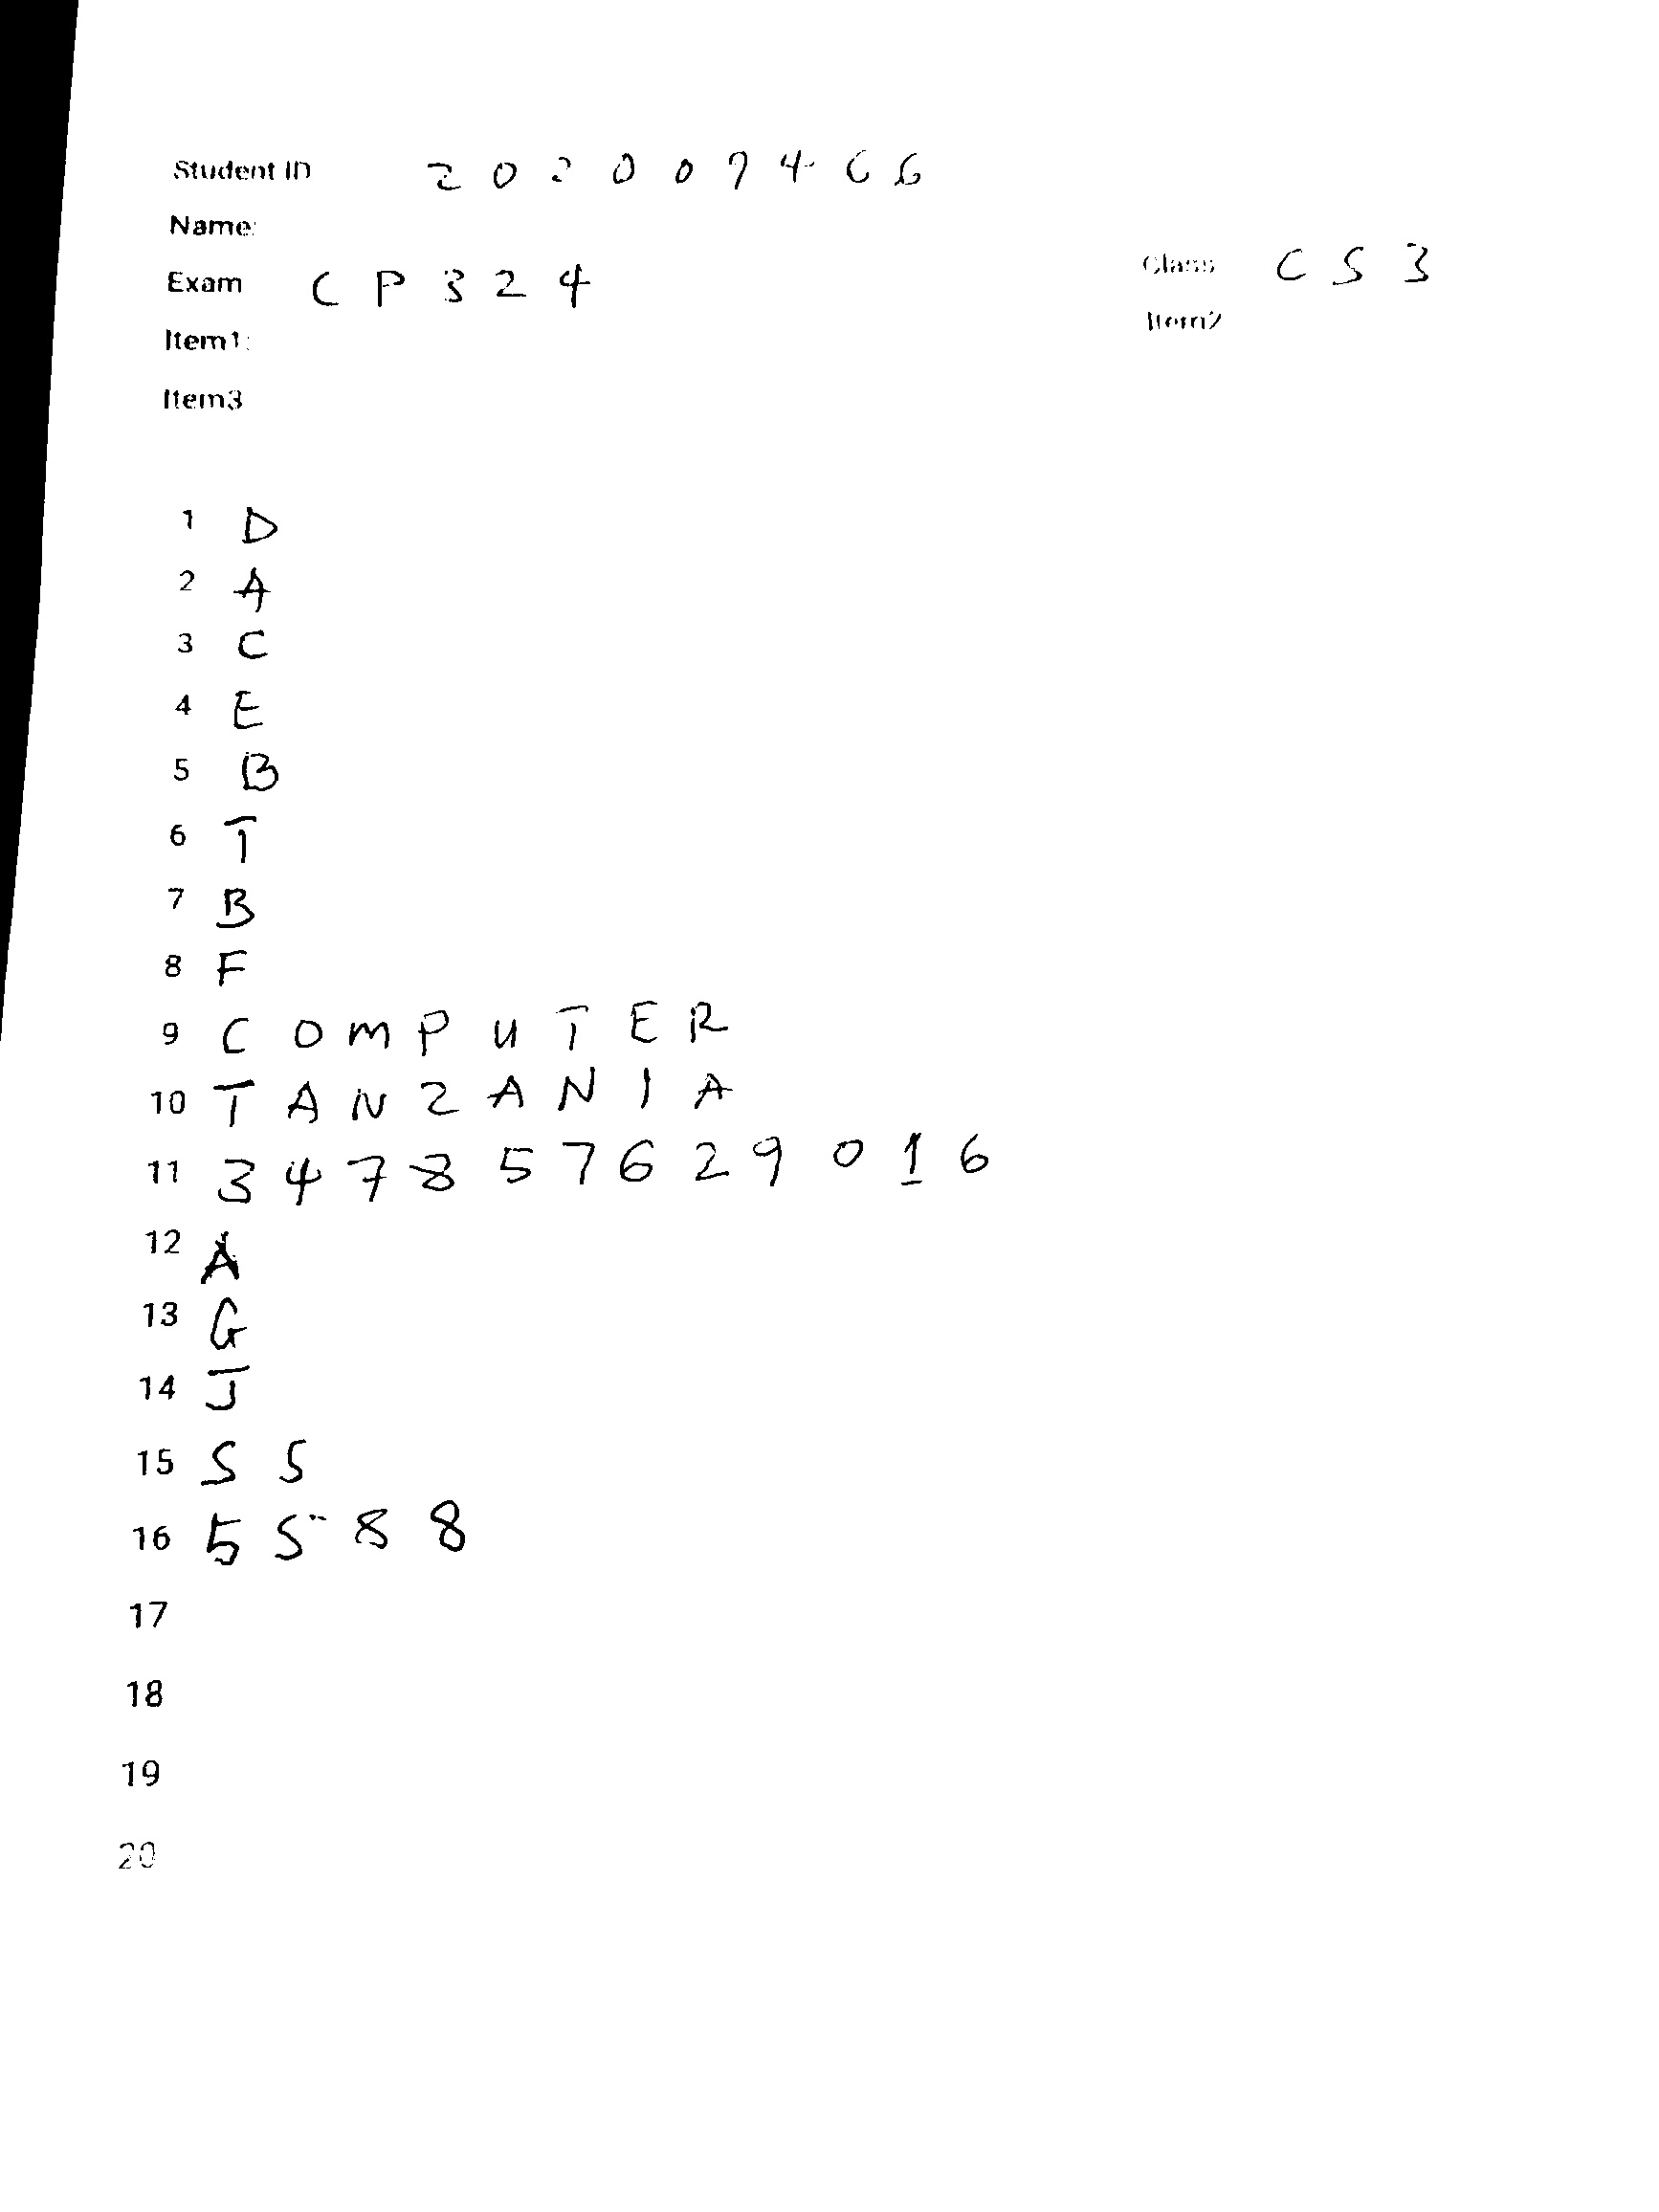 Student ID 2 0 2 0 0 7 4 6 6
Name:
Exam C P 3 2 4
Class C S 3
Item1:
Item2
Item3
1 D
2 A
3 C
4 E
5 B
6 T
7 B
8 F
9 C O M P U T E R
10 T A N Z A N I A
11 3 4 7 8 5 7 6 2 9 0 1 6
12 A
13 G
14 J
15 S S
16 5 5 8 8
17
18
19
20